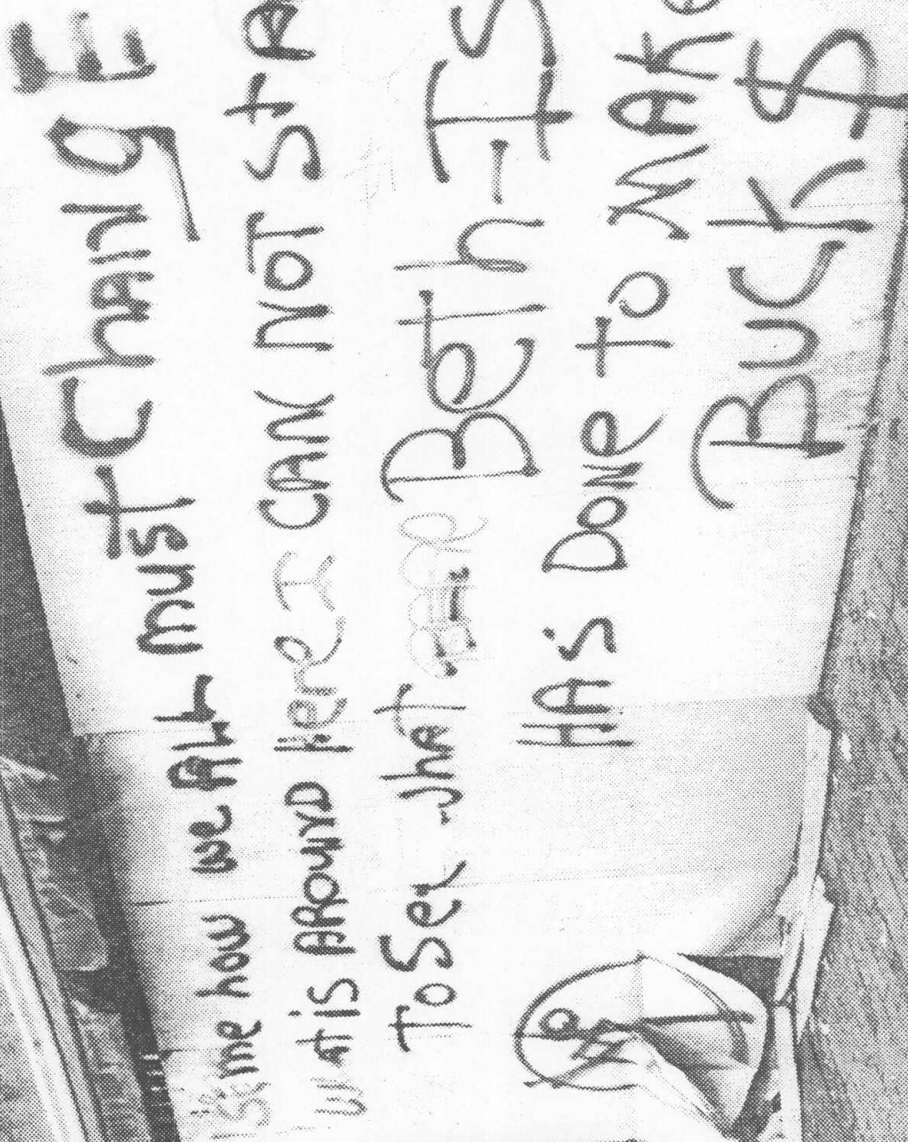 me how we ALL must ChANgE
wAt iS AROUND Here I CAN NOT StA
To See whAT Beth-IS
HAS DONe To MAKe
BUCK$